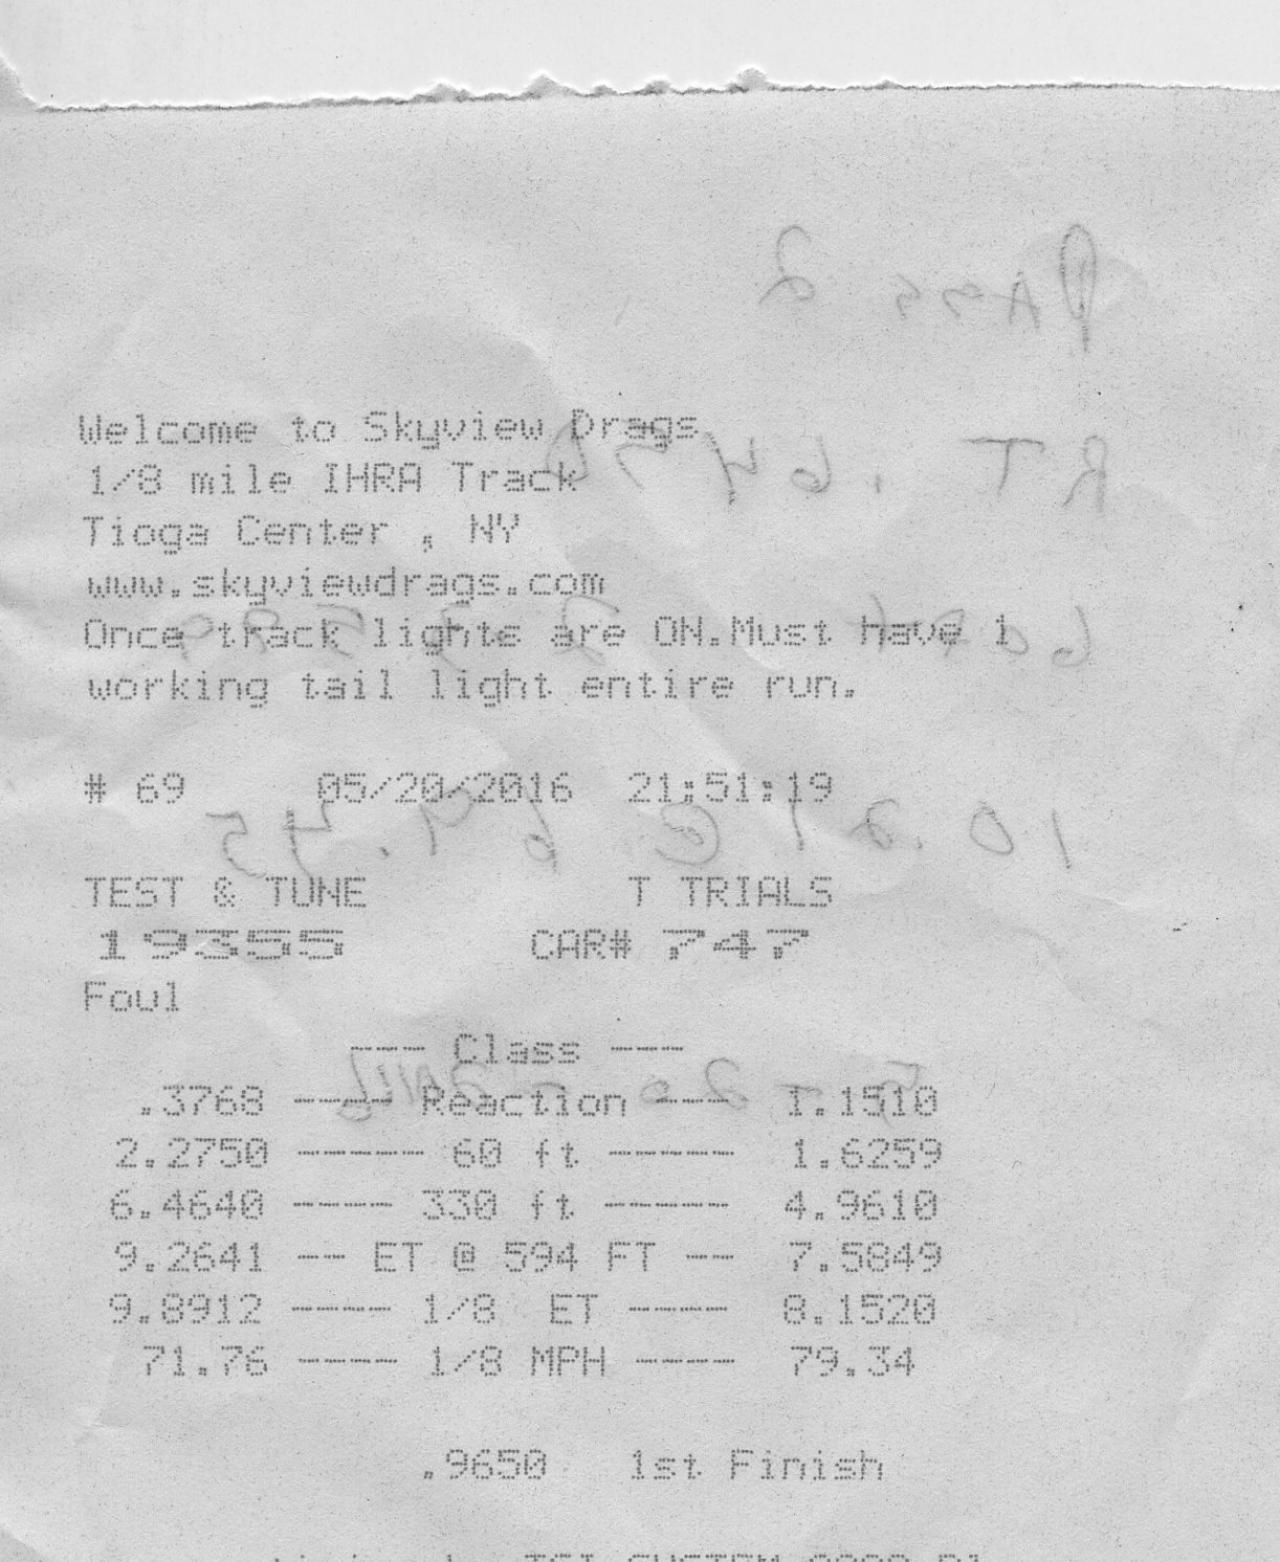 Welcome to Skyview Drags
1/8 mile IHRA Track
Tioga Center , NY
www.skyviewdrags.com
Once track lights are ON.Must have 1
working tail light entire run.
# 69 05/20/2016 21:51:19
TEST & TUNE T TRIALS
19355 CAR# 747
Foul
--- Class ---
.3768 ---- Reaction --- 1.1510
2.2750 ----- 60 ft ----- 1.6259
6.4640 ---- 330 ft ----- 4.9610
9.2641 -- ET @ 594 FT -- 7.5849
9.8912 ---- 1/8 ET ---- 8.1520
71.76 ---- 1/8 MPH ---- 79.34
.9650 1st Finish
Pass 2
RT .64
10.21 @ 69.45